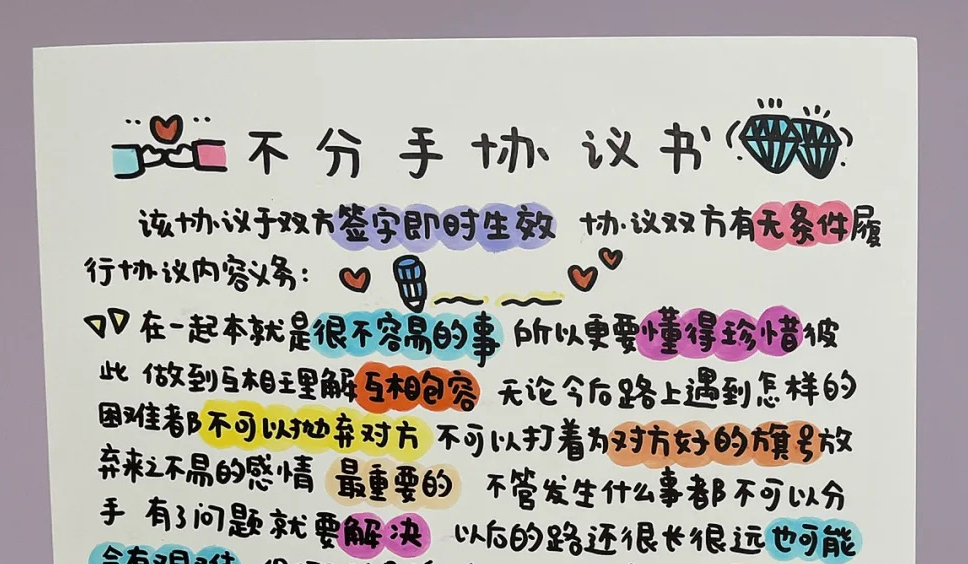 不分手协议书
该协议于双方签字即时生效 协议双方有无条件履
行协议内容义务:
在一起本就是很不容易的事 所以更要懂得珍惜彼
此 做到互相理解互相包容 无论今后路上遇到怎样的
困难都不可以抛弃对方 不可以打着为对方好的旗号放
弃来之不易的感情 最重要的 不管发生什么事都不可以分
手 有了问题就要解决 以后的路还很长很远也可能